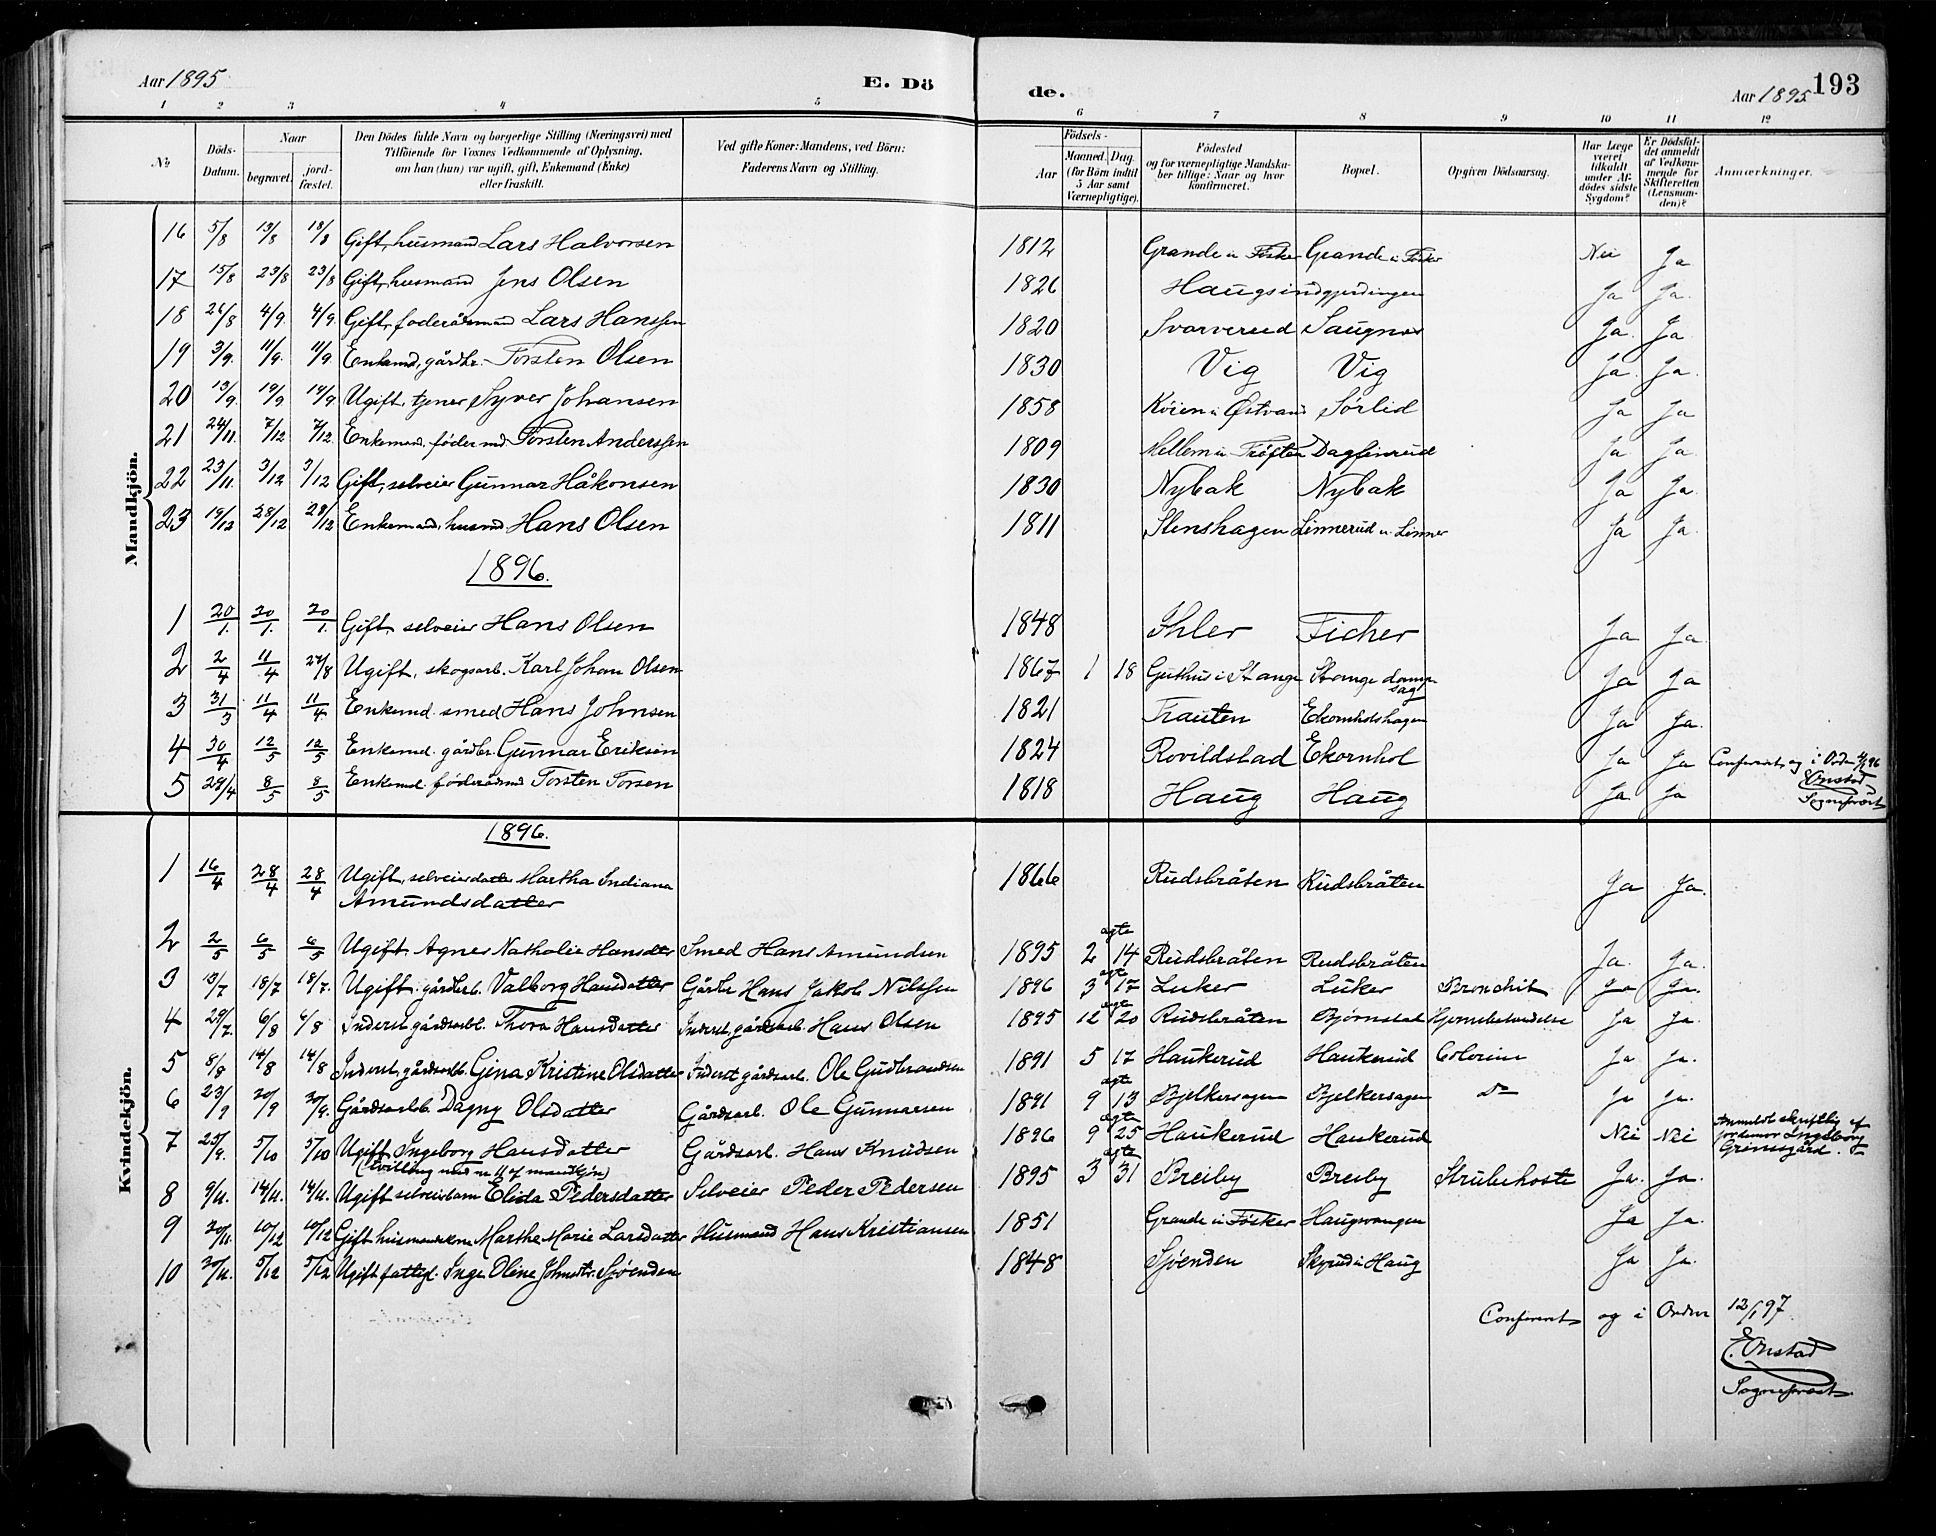 Aar 1895 E. Dö de. Aar 1895 193
1 2 3 4 5 6 7 8 9 10 11 12
No
Döds-Datum.
Naar
begravet.
jord-fæstet.
Den Dödes fulde Navn og borgerlige Stilling (Næringsvei) med
Tilföiende for Voxnes Vedkommende af Oplysning,
om han (hun) var ugift, gift, Enkemand (Enke)
eller fraskilt.
Ved gifte Koner: Mandens, ved Börn:
Faderens Navn og Stilling.
Födsels-
Aar
Maaned. Dag.
(for Börn indtil
5 Aar samt
Værnepligtige).
Födested
og for værnepligtige Mandska-
ber tillige: Naar og hvor
konfirmeret.
Bopæl.
Opgiven Dödsaarsag.
Har Læge
været
tilkaldt
under Af-
dödes sidste
Sygdom?
Er Dödsfal-
det anmeldt
af Vedkom-
mende for
Skifteretten
(Lensman-
den)?
Anmærkninger.
Mandkjön.
16 5/8 13/8 18/8 Gift, husmand Lars Halvorsen 1812 Grande u Fisker Grande u Fisker Nei Ja
17 15/8 23/8 23/8 Gift, husmand Jens Olsen 1826 Haugsindgjerdingen Ja Ja.
18 26/8 4/9 4/9 Gift, föderådsmand Lars Hanssen 1820 Svarverud Saugnes Ja. Ja
19 3/9. 11/9. 11/9 Enkemd, gårdbr. Torsten Olsen 1830 Vig Vig Ja. Ja.
20 13/9. 19/9 19/9 Ugift, tjener Syver Johansen 1858 Köien u Østvand Sörlid Ja Ja
21 24/11. 7/12 7/12. Enkemand, föder md Torsten Anderssen 1809 Mellem u Tröften Dagfinrud Ja Ja.
22 23/11. 3/12 3/12 Gift, selveier Gunnar Håkonsen 1830 Nybak Nybak Ja Ja.
23 19/12 28/12 28/12 Enkemand, husmd Hans Olsen 1811 Stenshagen Linnerud u. Linner Ja Ja.
1896.
1 20/1. 30/1. 30/1. Gift, selveier Hans Olsen 1848 Ihler Ficher Ja Ja.
2 2/4 11/4 27/8 Ugift, skogsarb. Karl Johan Olsen 1867 1 18 Guthus i Stange Stange damp sag Ja Ja
3 31/3 11/4 11/4 Enkemd. smed Hans Johnsen 1821 Trauten Ekornholshagen Ja Ja.
4 30/4 12/5 12/5 Enkemd. gårdbr. Gunnar Eriksen 1824 Rovildstad Ekornhol Ja Ja Conferert, og i Orden 4/1 96
5 28/4 8/5 8/5 Enkemd. föderådsmd Torsten Torsen 1818 Haug Haug Ja. Ja E Onstad
Sogneprest
Kvindekjön.
1896.
1 16/4 28/4 28/4 Ugift, selveierdatter Martha Indiana 1866 Rudsbråten Rudsbråten Ja Ja.
Amundsdatter
2 2/5 6/5 6/5 Ugift. Agnes Nathalie Hansdtr Smed Hans Amundsen 1895 2 ægte 14 Rudsbråten Rudsbråten Ja. Ja.
3 13/7 18/7 18/7. Ugift. gårdbrb. Valborg Hansdatter Gårdbr Hans Jakob Nilssen 1896 3 ægte 17 Luker Luker Bronchit Ja Ja.
4 29/7. 6/8 6/8 Inderst, gårdsarbb. Thora Hansdatter Inderst, gårdsarb. Hans Olsen 1895 12 ægte 20 Rudsbråten Björnstad Hjernebetændelse Ja Ja.
5 8/8 14/8 14/8 Inderst, gårdsarbb. Gina Kristine Olsdatter Inderst gårdsarb. Ole Gudbrandsen 1891 5 17 Haukerud Haukerud Colerine Ja Ja.
6 23/9 30/9 30/9. Gårdsarbb. Dagny Olsdatter Gårdsarb. Ole Gunnarsen 1891 9 ægte 13 Bjelkersagen Bjelkersagen do Ja Ja.
7 25/9. 5/10 5/10 Ugift Ingeborg Hansdatter Gårdsarb. Hans Knudsen 1896 9 ægte 25 Haukerud Haukerud Nei Nei Anmeldt skriftlig af
jordemor Ingeborg
Grimsgård.
(Tvilling med n 11 af mandkjön)
8 9/11. 14/11. 14/11. Ugift selveierbarn Elida Pedersdatter Selveier Peder Pedersen 1895 3 ægte 31 Breiby Breiby Strubehoste Ja. Ja.
9 30/11. 10/12 10/12 Gift husmandskone Marthe Marie Larsdatter Husmand Hans Kristiansen 1851 Grande u Fisker Haugsvangen Ja Ja.
10 30/11. 5/12 5/12 Ugift fattigl. Inge Oline Johnsdtr. Sjöenden 1848 Sjöenden Skyrud i Haug Ja Ja.
Conferert og i Orden 12/1 97
E. Onstad
Sogneprest